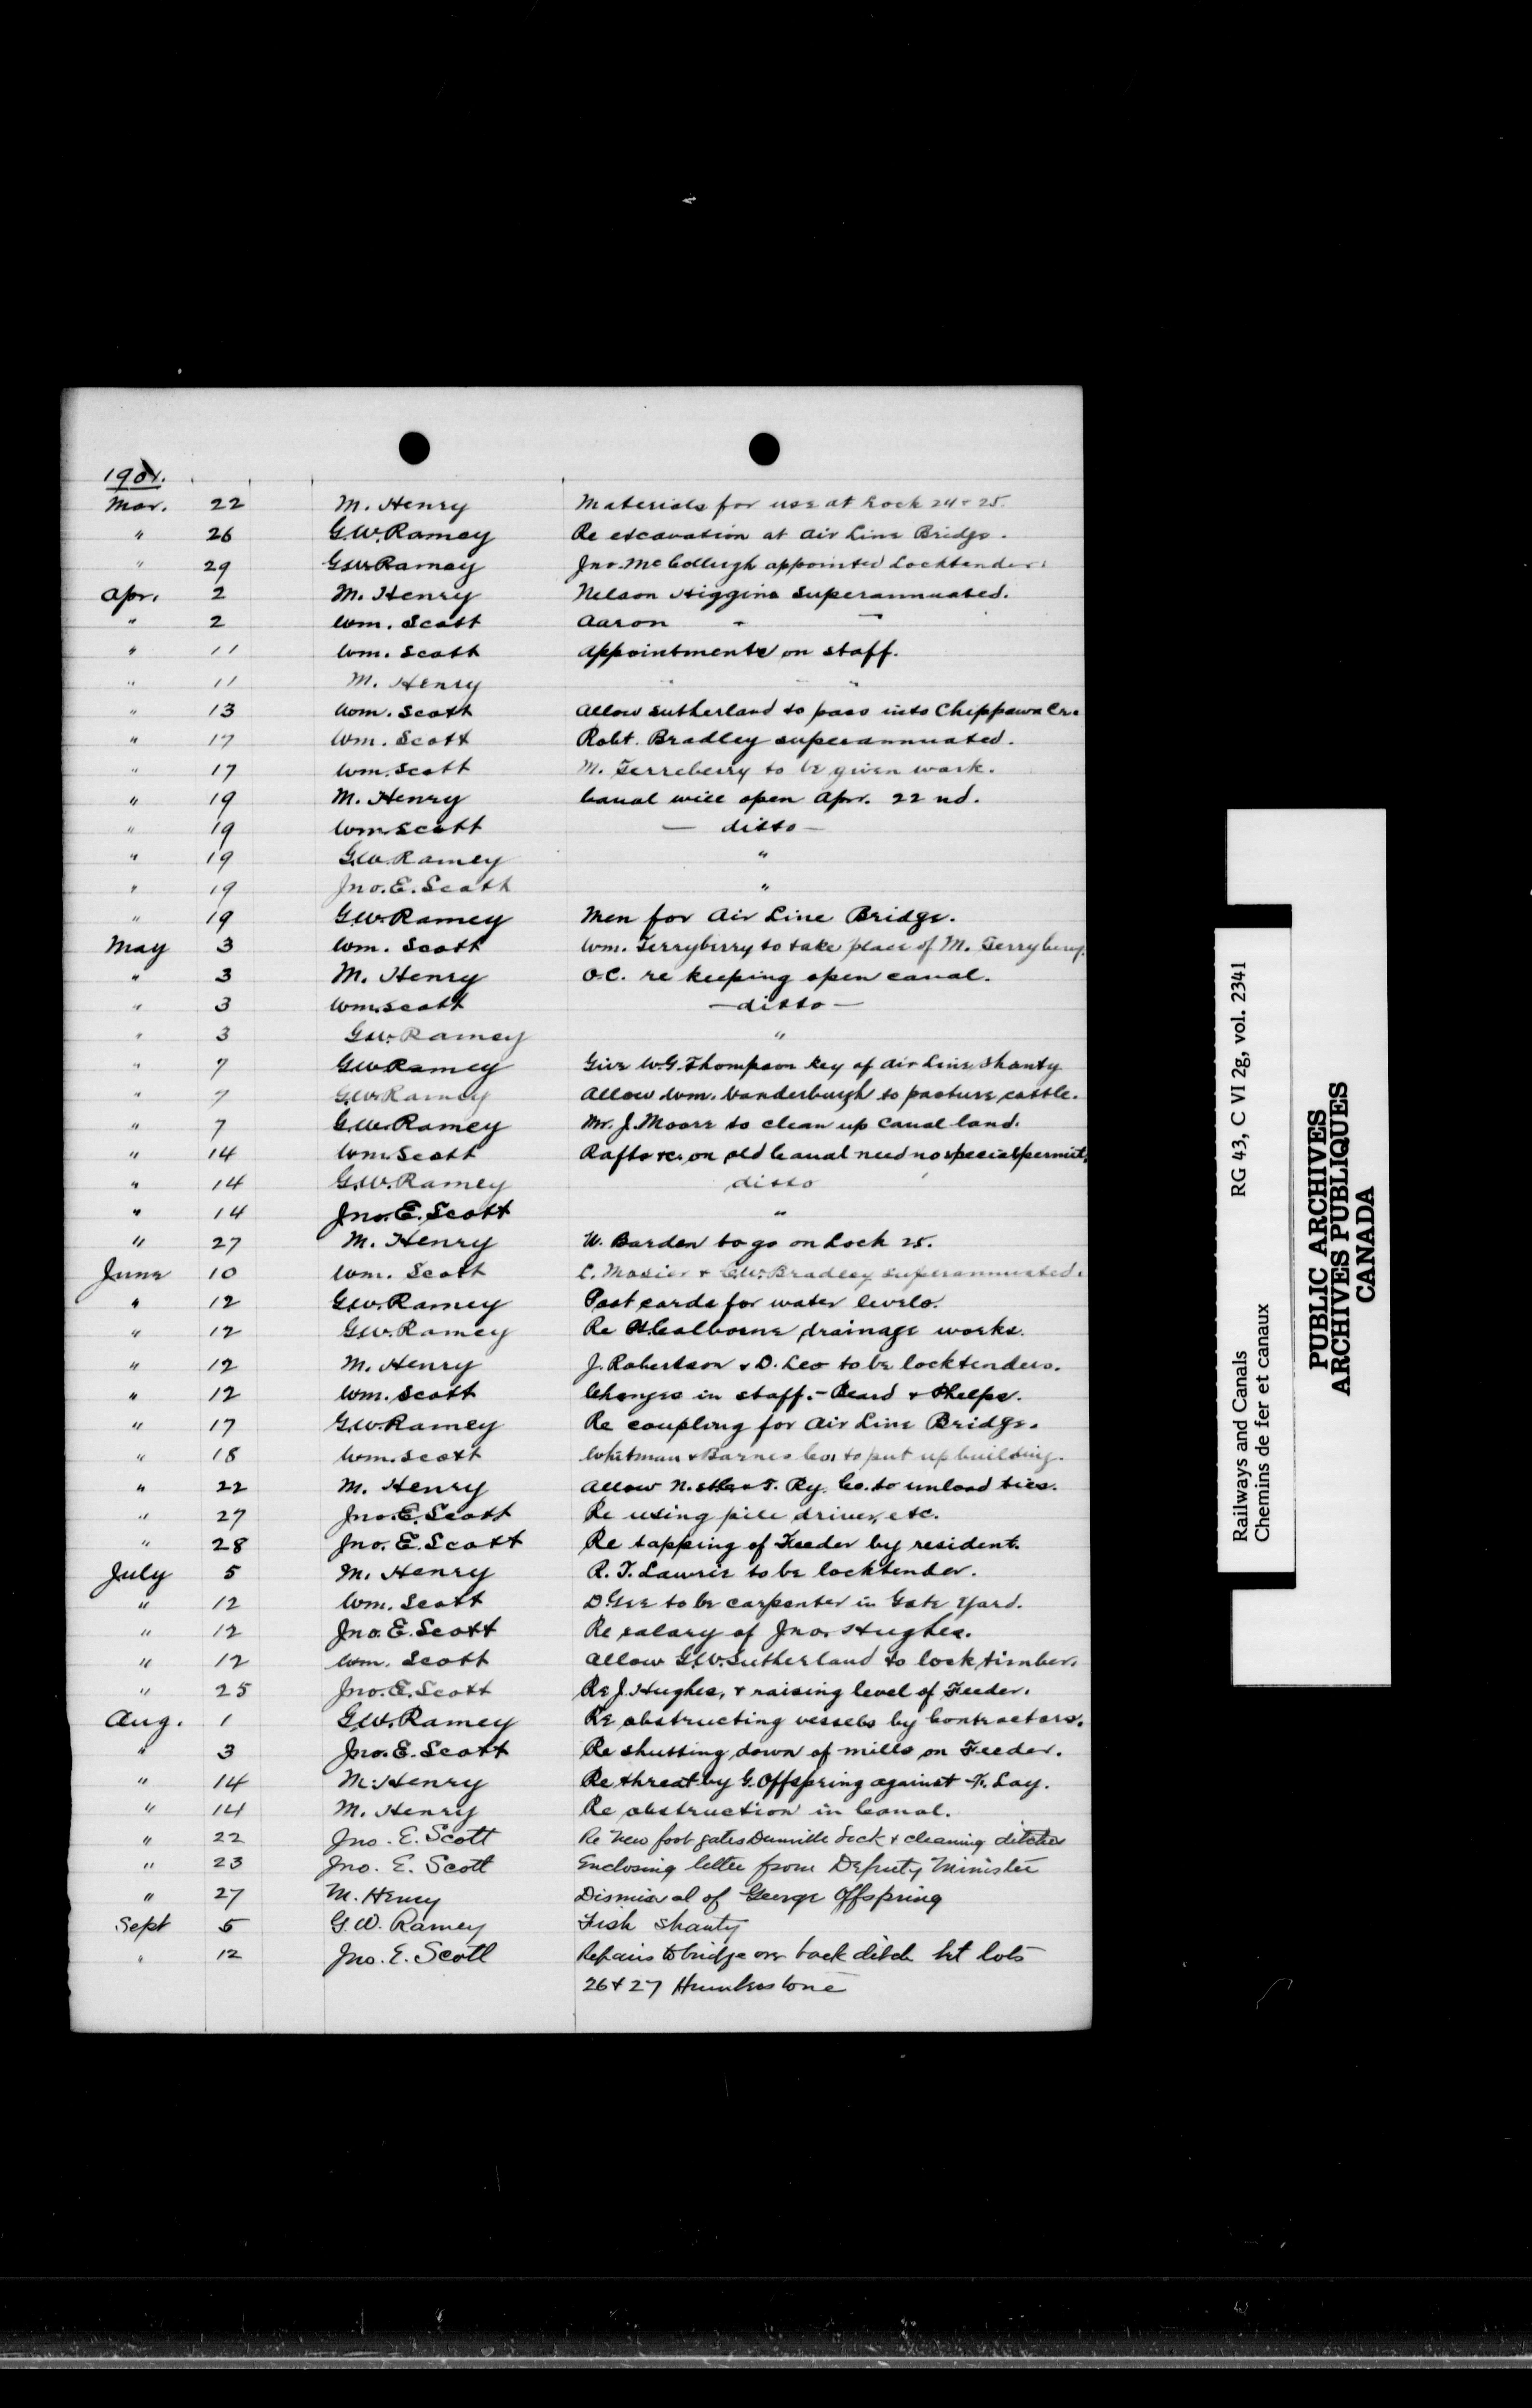 1901.
Mar. 22 M. Henry Materials for use at Lock 24 & 25.
" 26 G.W. Ramey Re excavation at Air Line Bridge.
" 29 G.W. Ramey Jno. McCollugh appointed Locktender.
Apr. 2 M. Henry Nelson Higgins superannuated.
" 2 Wm. Scott Aaron " "
" 11 Wm. Scott Appointments on staff.
" 11 M. Henry " " "
" 13 Wm. Scott Allow Sutherland to pass into Chippawa Cr.
" 17 Wm. Scott Robt. Bradley superannuated.
" 17 Wm. Scott M. Terreberry to be given work.
" 19 M. Henry Canal will open Apr. 22nd.
" 19 Wm. Scott — ditto —
" 19 G.W. Ramey "
" 19 Jno. E. Scott "
" 19 G.W. Ramey Men for Air Line Bridge.
May 3 Wm. Scott Wm. Terryberry to take place of M. Terrybery.
" 3 M. Henry O.C. re keeping open canal.
" 3 Wm. Scott — ditto —
" 3 G.W. Ramey "
" 7 G.W. Ramey Give W.G. Thompson key of Air Line Shanty
" 7 G.W. Ramey Allow Wm. Vanderburgh to pasture cattle.
" 7 G.W. Ramey Mr. J. Moore to clean up Canal land.
" 14 Wm. Scott Rafts &c. on old Canal need no special permit.
" 14 G.W. Ramey ditto
" 14 Jno. E. Scott "
" 27 M. Henry W. Barden to go on Lock 25.
June 10 Wm. Scott L. Mosier & C.W. Bradley superannuated.
" 12 G.W. Ramey Post cards for water levels.
" 12 G.W. Ramey Re drainage works.
" 12 M. Henry J. Robertson & D. Leo to be locktenders.
" 12 Wm. Scott Changes in staff. - Beard & Phelps.
" 17 G.W. Ramey Re coupling for Air Line Bridge.
" 18 Wm. Scott Whitman & Barnes Co. to put up building.
" 22 M. Henry Allow N. St. C. & T. Ry. Co. to unload ties.
" 27 Jno. E. Scott Re using pile driver, etc.
" 28 Jno. E. Scott Re tapping of Feeder by resident.
July 5 M. Henry R. T. Lawrie to be locktender.
" 12 Wm. Scott D. Gee to be carpenter in Gate Yard.
" 12 Jno. E. Scott Re salary of Jno. Hughes.
" 12 Wm. Scott Allow G.W. Sutherland to lock timber.
" 25 Jno. E. Scott Re J. Hughes, & raising level of Feeder.
Aug. 1 G.W. Ramey Re obstructing vessels by Contractors.
" 3 Jno. E. Scott Re shutting down of mills on Feeder.
" 14 M. Henry Re threat by G. Offspring against F. Lay.
" 14 M. Henry Re obstruction in Canal.
" 22 Jno. E. Scott Re New foot gates Dunnville Lock & cleaning ditches
" 23 Jno. E. Scott Enclosing letter from Deputy Minister
" 27 M. Henry Dismissal of George Offspring
Sept 5 G. W. Ramey Fish shanty
" 12 Jno. E. Scott Repairs to bridge over back ditch bet lots
26 & 27 Humberstone
Railways and Canals RG 43, C VI 2g, vol. 2341
Chemins de fer et canaux
PUBLIC ARCHIVES
ARCHIVES PUBLIQUES
CANADA